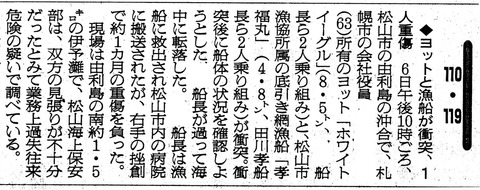 110・119
◆ヨットと漁船が衝突、1
人重傷　6日午後10時ごろ、
松山市の由利島の沖合で、札
幌市の会社役員
(63)所有のヨット「ホワイト
イーグル」(8・5㌧、船
長ら2人乗り組み)と、松山市
漁協所属の底引き網漁船「孝
福丸」(4・8㌧、田川孝船
長ら2人乗り組み)が衝突。衝
突後に船体の状況を確認しよ
うとした　船長が過って海
中に転落した。　船長は漁
船に救出され松山市内の病院
に搬送されたが、右手の挫創
で約1カ月の重傷を負った。
現場は由利島の南約1・5
㌔の伊予灘で、松山海上保安
部は、双方の見張りが不十分
だったとみて業務上過失往来
危険の疑いで調べている。